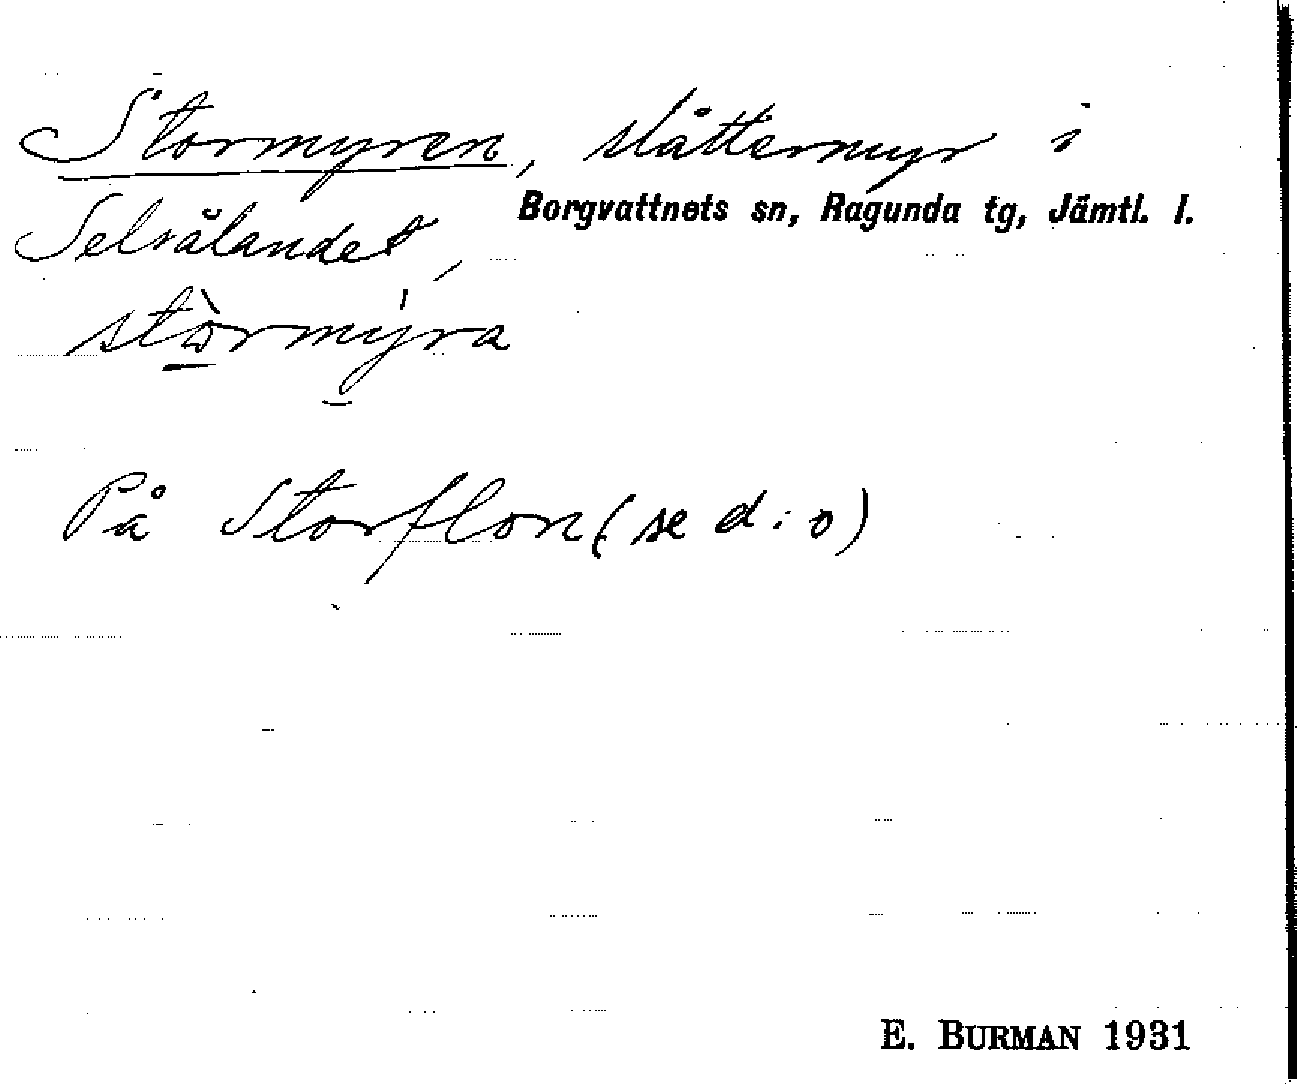 Stormyren, slåttermyr i
Borgvattnets sn, Ragunda tg, Jämtl. l.
Selsålandet,
stòrmýra
På Storflon (se d:o)
E. BURMAN 1931